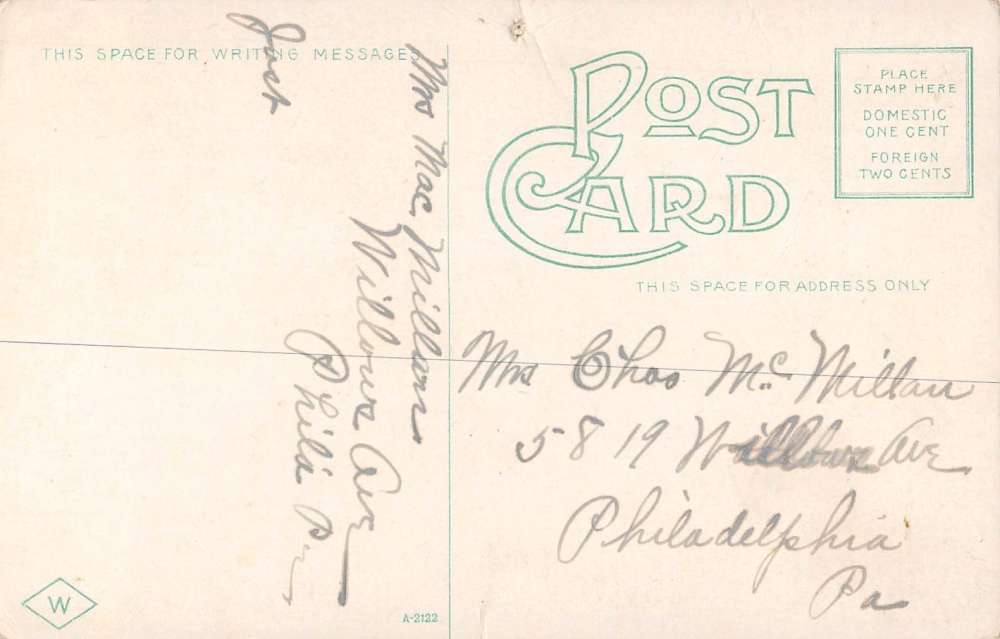 THIS SPACE FOR WRITING MESSAGES
Just
Mrs Mac Millan
Willows Ave
Phila Pa
POST
CARD
PLACE
STAMP HERE
DOMESTIC
ONE CENT
FOREIGN
TWO CENTS
THIS SPACE FOR ADDRESS ONLY
Mrs Chas Mc Millan
5819 Willows Ave
Philadelphia
Pa
W
A-2122